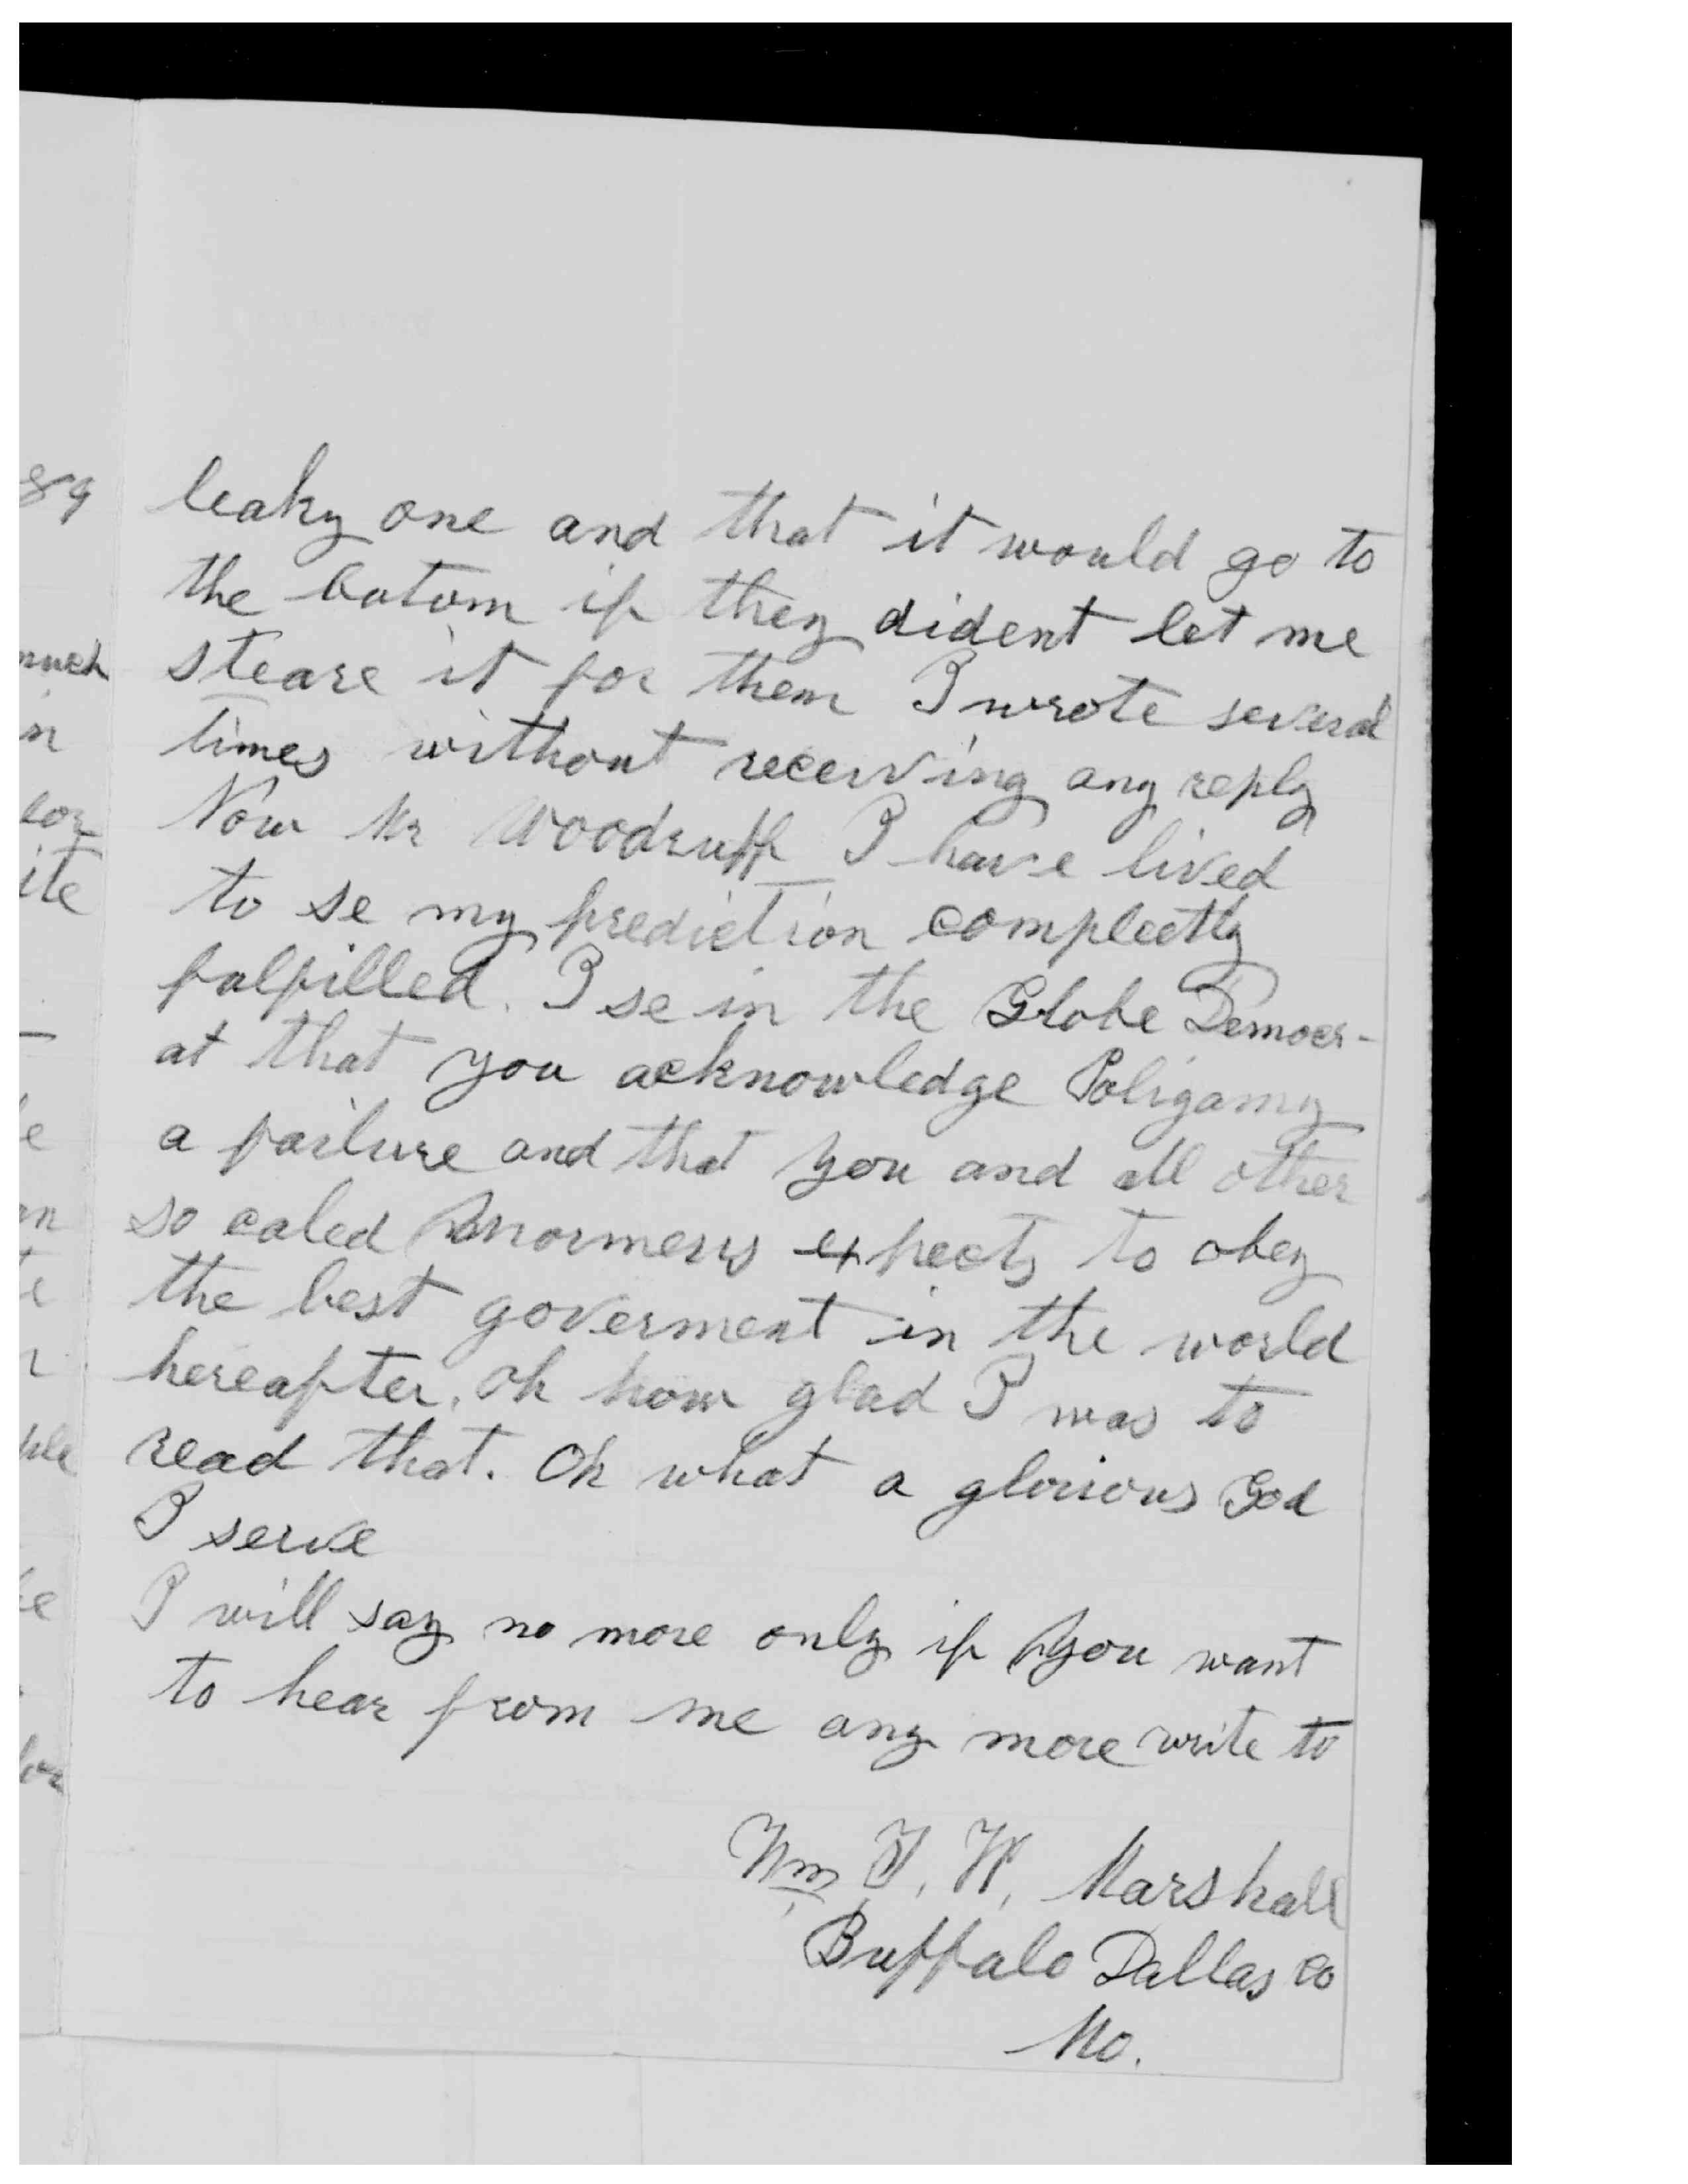 leaky one and that it would go to
the botom if they dident let me
steare it for them I wrote several
times without receiving any reply
Now Mr Woodruff I have lived
to se my prediction compleetly
fulfilled. I se in the Globe Democr-
at that you acknowledge Poligamy
a failure and that you and all other
so caled Mormens expects to obey
the best goverment in the world
hereafter. Oh how glad I was to
read that. Oh what a glorious God
I serve
I will say no more only if you want
to hear from me any more write to
Wm T. W. Marshall
Buffalo Dallas co
Mo.